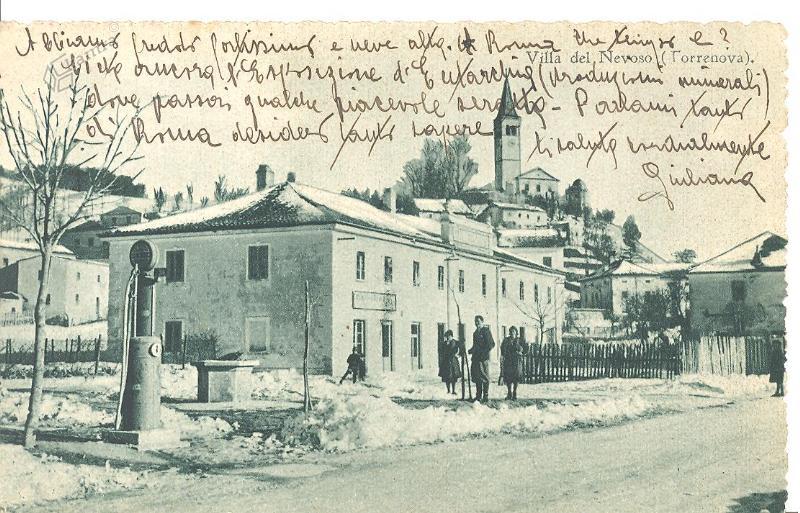 Abbiamo freddo fortissimo e neve alta. A Roma che tempo è?
Villa del Nevoso (Torrenova).
Vide ancora l'Esposizione d' (produzioni minerali)
dove passai qualche piacevole serata - Parlami tanto
di Roma desidero tanto sapere
ti saluto cordialmente
Giuliana